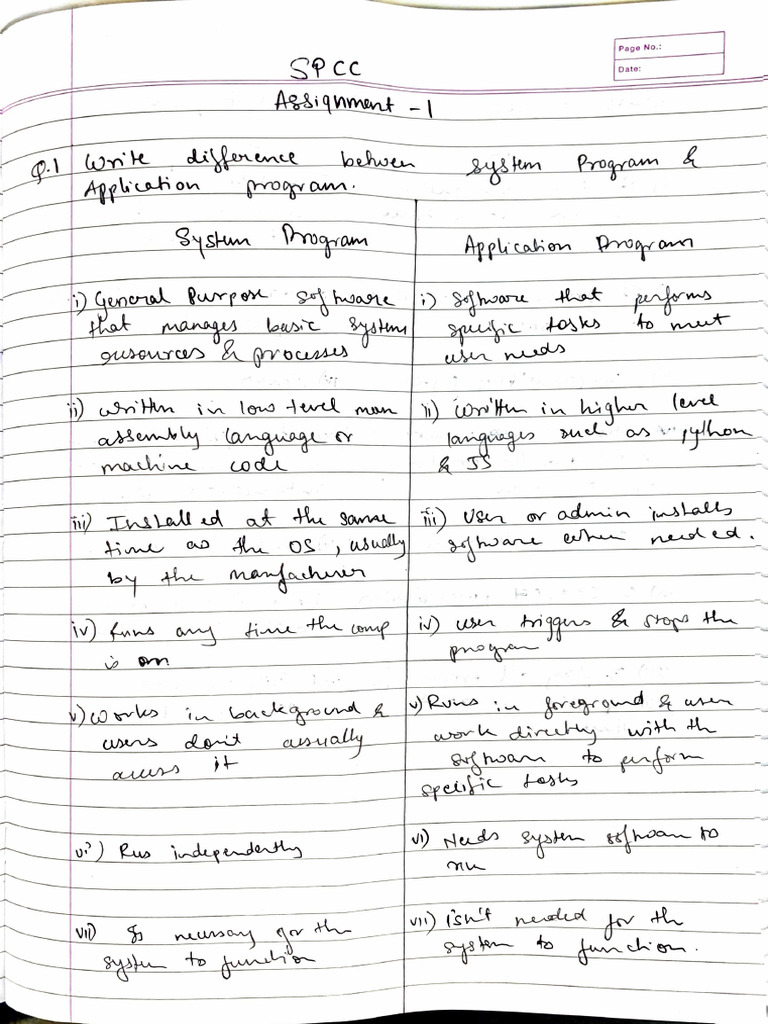 Page No.:
Date:
SPCC
Assignment - 1
Q.1 Write difference between system Program &
Application program.
System Program
i) General Purpose software
that manages basic system
resources & processes
ii) written in low level man
assembly language or
machine code
iii) Installed at the same
time as the OS, usually
by the manfacturer
iv) Runs any time the comp
is on
v) Works in background &
users don't usually
access it
vi) Runs independently
vii) Is necessary for the
system to function
Application Program
i) Software that performs
specific tasks to meet
user needs
ii) Written in higher level
languages such as python
& JS
iii) User or admin installs
software when needed.
iv) user triggers & stops the
program
v) Runs in foreground & user
work directly with the
software to perform
specific tasks
vi) Needs system software to
run
vii) isn't needed for the
system to function.